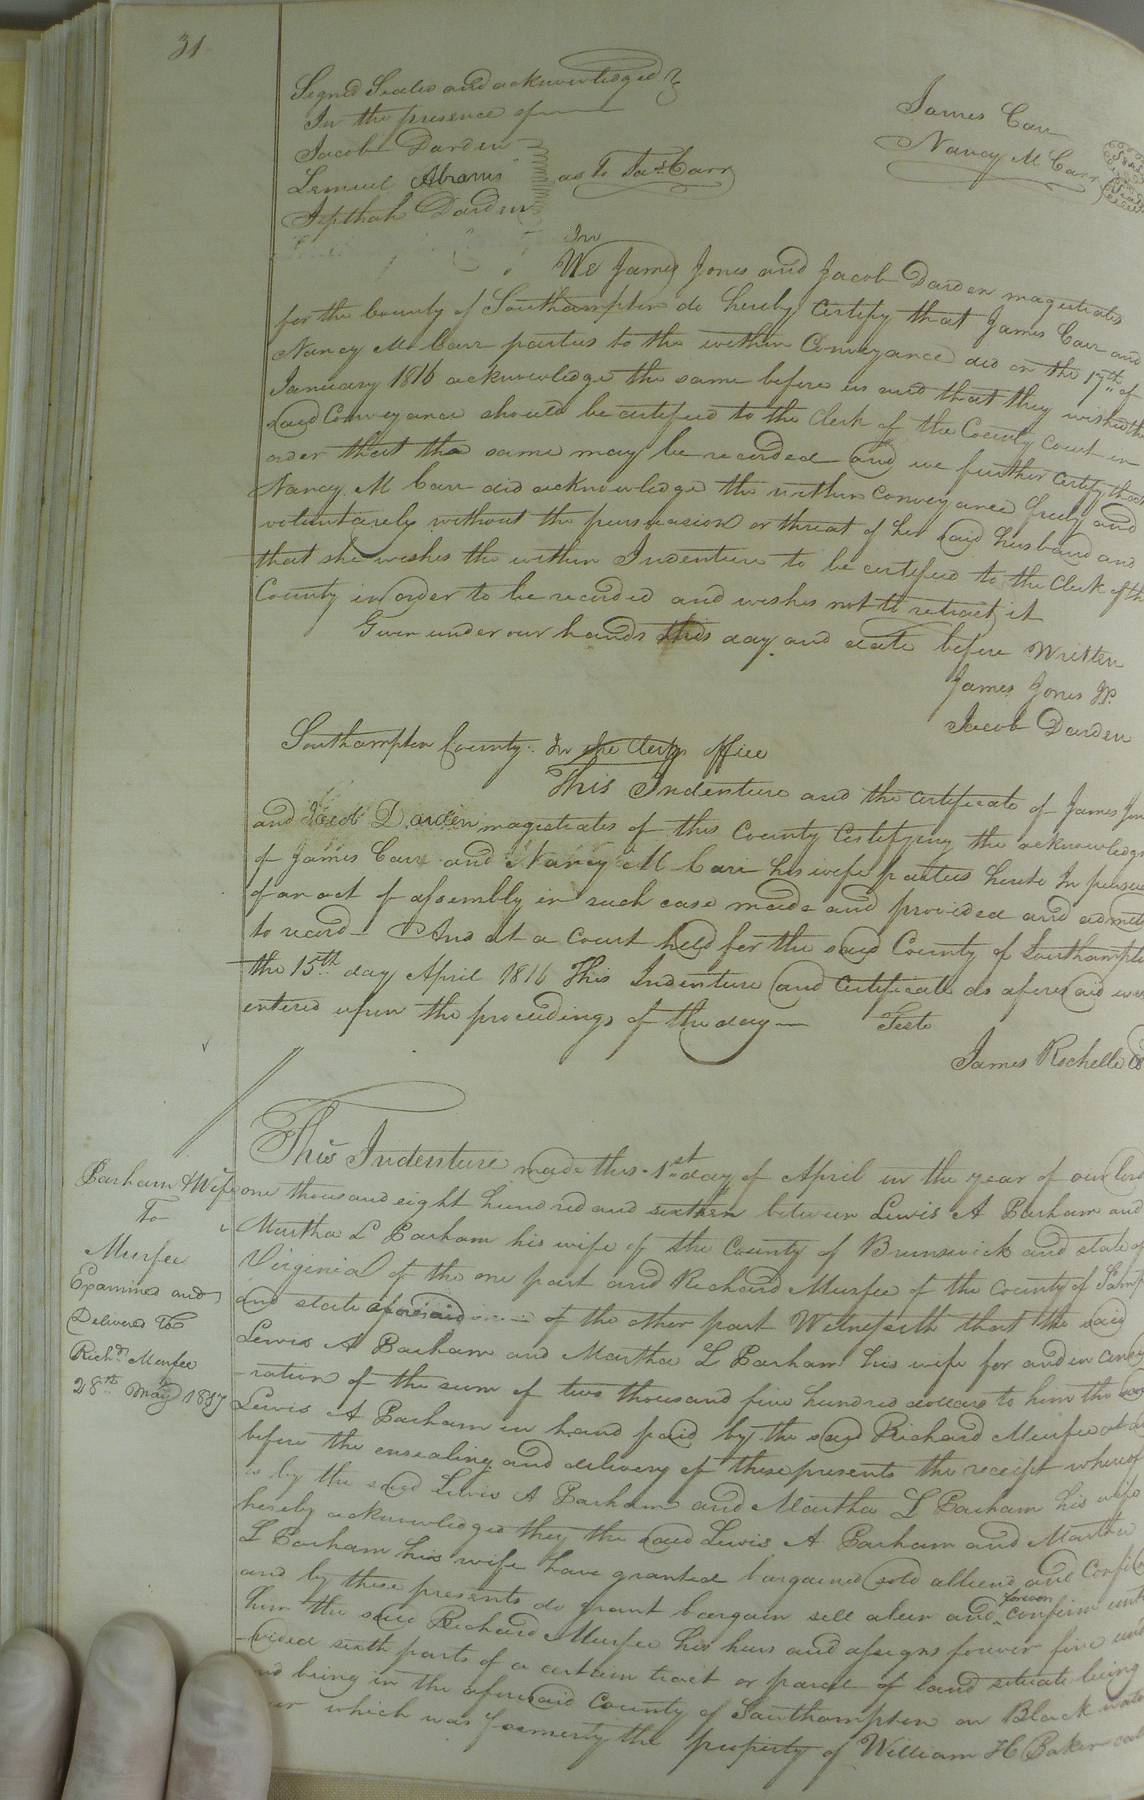 31
Signed Sealed and acknowledged
In the presence of
Jacob Darden
Lemuel Abrams as to Jas Carr
Jepthah Darden
James Carr
Nancy M. Carr
Seal
Seal
We James Jones and Jacob Darden magistrates
for the County of Southampton do hereby Certify that James Carr and
Nancy M Carr parties to the within Conveyance did on the 17th of
January 1816 acknowledge the same before us and that they wished the
said Conveyance should be certified to the Clerk of the County Court in
order that the same may be recorded and we further certify that
Nancy M Carr did acknowledge the within conveyance freely and
voluntarely without the persuasion or threat of her said husband and
that she wishes the within Indenture to be certified to the Clerk of th
County in order to be recorded and wishes not to retract it
Given under our hands this day and date before Written
James Jones JP.
Jacob Darden
Southampton County. In the Clerks office
This Indenture and the certificate of James Jon
and Jacob Darden magistrates of this County Certifying the acknowledg
of James Carr and Nancy M Carr his wife parties hereto In pursu
of an act of assembly in such case made and provided and admit
to record And at a Court held for the said County of Southampto
the 15th day April 1816 This Indenture and Certificate as aforesaid wer
entered upon the proceedings of the day Teste
James Rochelle
This Indenture made this 1st day of April in the year of our lord
Parham & Wife
To
Murfee
Examined and
Delivered To
Richd Murfee
28th May 1817
one thousand eight hundred and sixteen between Lewis A Parham and
Martha L Parham his wife of the County of Brunswick and state of
Virginia of the one part and Richard Murfee of the County of
and state aforesaid of the other part Witnesseth that the said
Lewis A Parham and Martha L Parham his wife for and in
ration of the sum of two thousand five hundred dollars to him the
Lewis A Parham in hand paid by the said Richard Murfee at
before the ensealing and delivery of these presents the receipt whereof
is by the said Lewis A Parham and Martha L Parham his wife
hereby acknowledged they the said Lewis A Parham and Martha
L Parham his wife have granted bargained sold aliend and
and by these presents do grant bargain sell alien and confirm unto
him the said Richard Murfee his heirs and assigns forever five und
vided sixth parts of a certain tract or parcel of land situate being
nd being in the aforesaid County of Southampton on Black wate
which was formerly the property of William H Baker